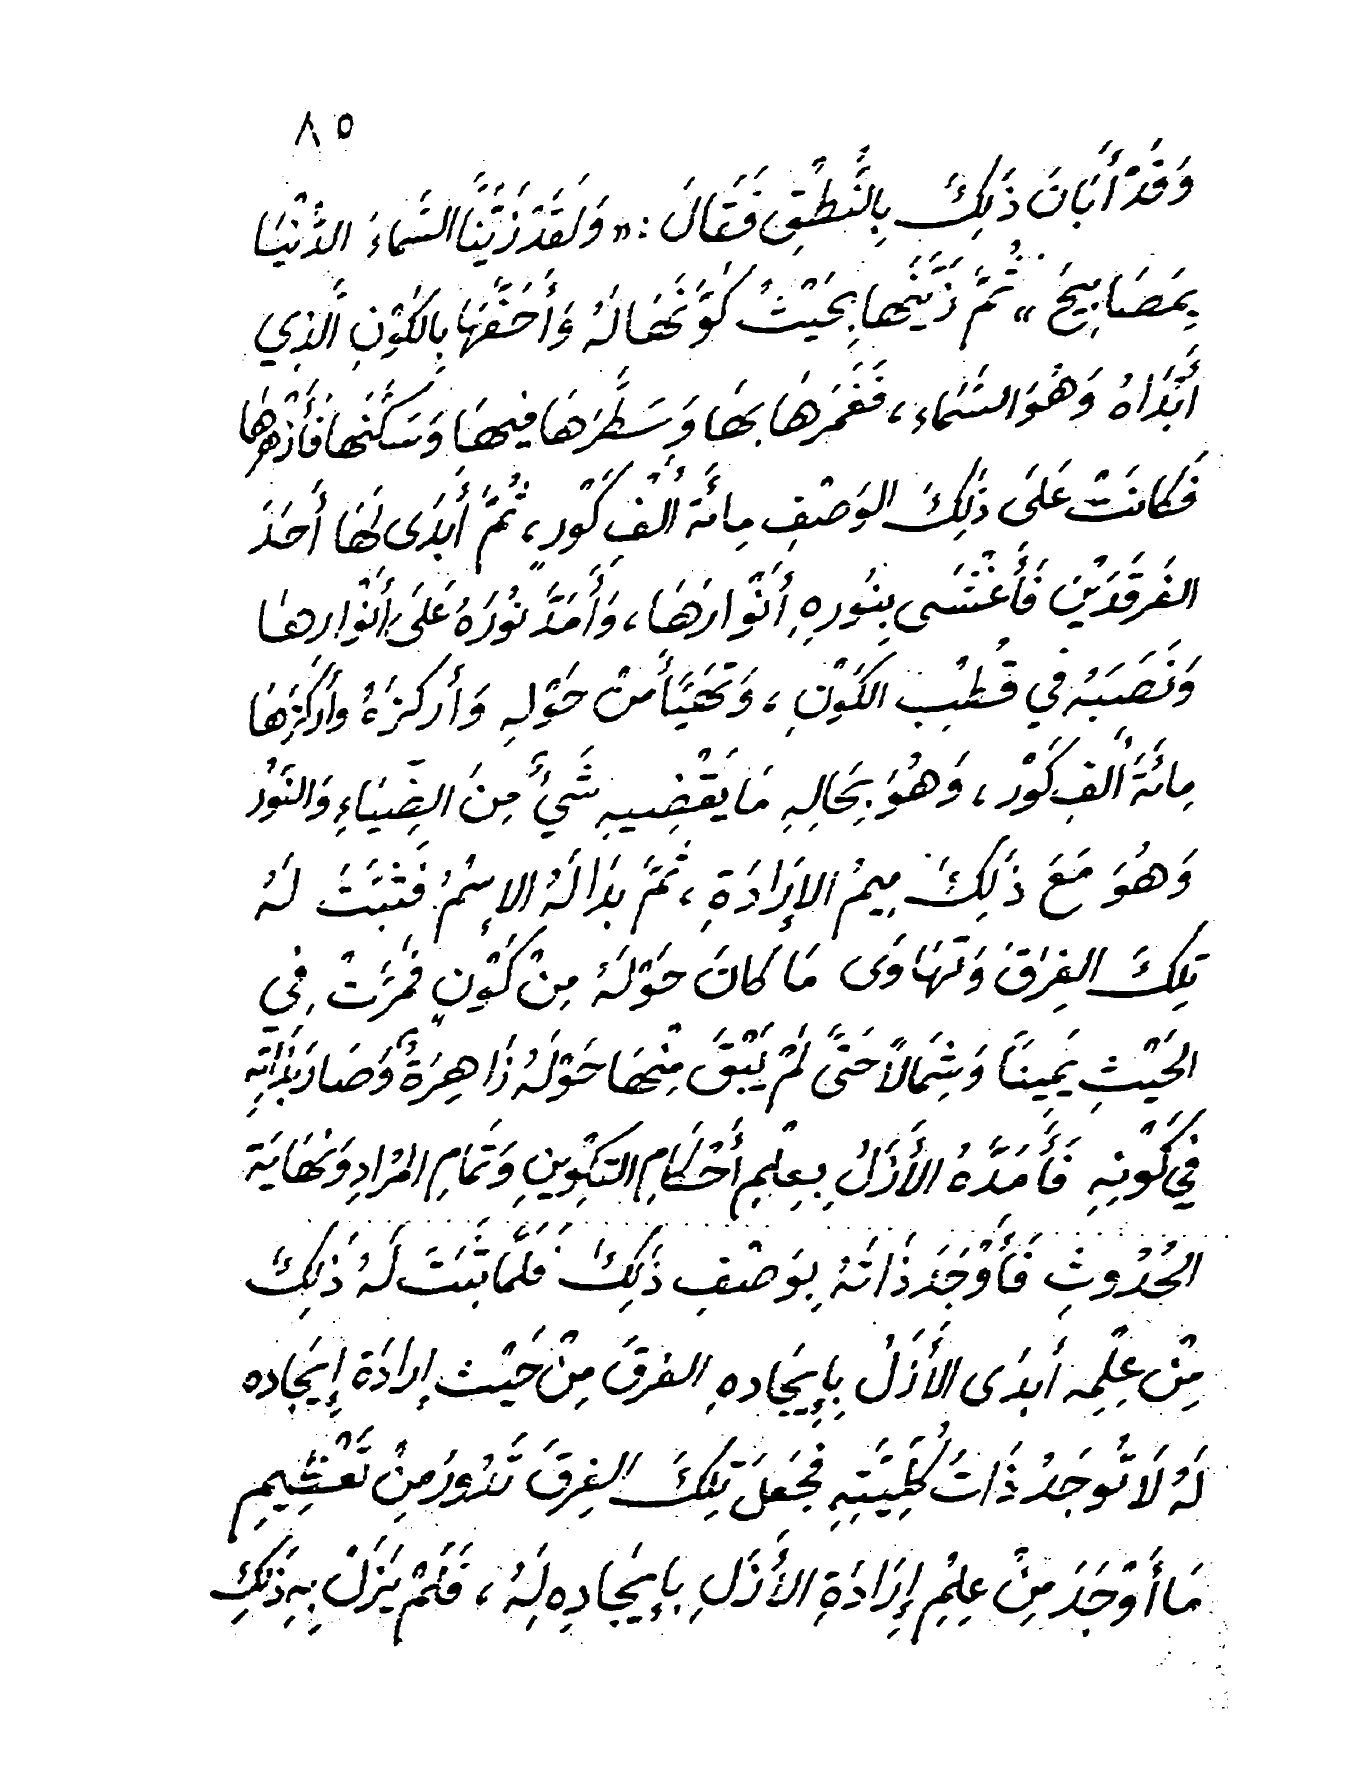 ٨٥
وَقَدْ أَبَانَ ذَلِكَ بِالنُّطْقِ فَقَالَ : « وَلَقَدْ زَيَّنَّا السَّمَاءَ الدُّنْيَا
بِمَصَابِيحَ » ثُمَّ زَيَّنَهَا بِحَيْثُ كَوَّنَهَا لَهُ وَأَحَفَّهَا بِالكَوْنِ الَّذِي
أَبْدَاهُ وَهُوَ السَّمَاء ، فَغَمَرَهَا بِهَا وَسَطَّرَهَا فِيهَا وَسَكَنَهَا فَأَزْهَرَهَا
فَكَانَتْ عَلَى ذَلِكَ الوَصْفِ مِائَة أَلْفِ كَوْرٍ ، ثُمَّ أَبْدَى لَهَا أَحَدَ
الفَرْقَدَيْنِ فَأَغْشَى بِنُورِهِ أَنْوَارَهَا ، وَأَمَدَّ نُورَهُ عَلَى أَنْوَارِهَا
وَنَصَبَهُ فِي قُطْبِ الكَوْنِ ، وَتَهَيَّأَ مَنْ حَوْلِهِ وَأَركَزَهُ وأَرْكَزَهَا
مِائَةَ أَلفِ كَوْر ، وَهُوَ بِحَالِهِ مَا يَقْضِيهِ شَيْءٌ مِنَ الضِّيَاءِ وَالنُّوْرِ
وَهُوَ مَعَ ذَلِكَ مِيمُ الإِرَادَةِ ، ثُمَّ بَدَا لَهُ الإِسْمُ فَثَبَتَ لَهُ
تِلكَ الفِرَقَ وَتَهَاوَى مَا كَانَ حَوْلَهُ مِنْ كَوْنٍ فَمَرَتْ فِي
الحَيْثِ يَمِينَاً وَشِمَالاً حَتَّى لَمْ يَبْقَ مِنْهَا حَوْلَهُ زَاهِرَةٌ وَصَارَ بِذَاتِهِ
فِي كَوْنِهِ فَأَمَدَّهُ الأَزَلُ بِعِلْمِ أَحْكَامِ التَكْوِينِ وَتَمَامِ المُرَادِ وَنَهَايَة
الحُدُوثِ فَأَوْجَدَ ذَاتَهُ بِوَصْفِ ذَلِكَ فَلَمَّا ثَبَتَ لَهُ ذَلِكَ
مِنْ عِلْمِه أَبدَى الأَزَلُ بِإِيجَادهِ الفرقَ مِنْ حَيْث إِرادَة إِيجَاده
لَهُ لَا تُوجَدُ ذَاتُ كُلِّيَّتِهِ فَجَعَلَ تِلكَ الفِرقَ تَدُورُ مِنْ تَعْشِيمِ
مَا أَوْجَدَ مِنْ عِلْمِ إِرَادَةِ الأَزَلِ بِإِيجَادِهِ لَهُ ، فَلَمْ يَزَلْ بِهِ ذَلِكِ